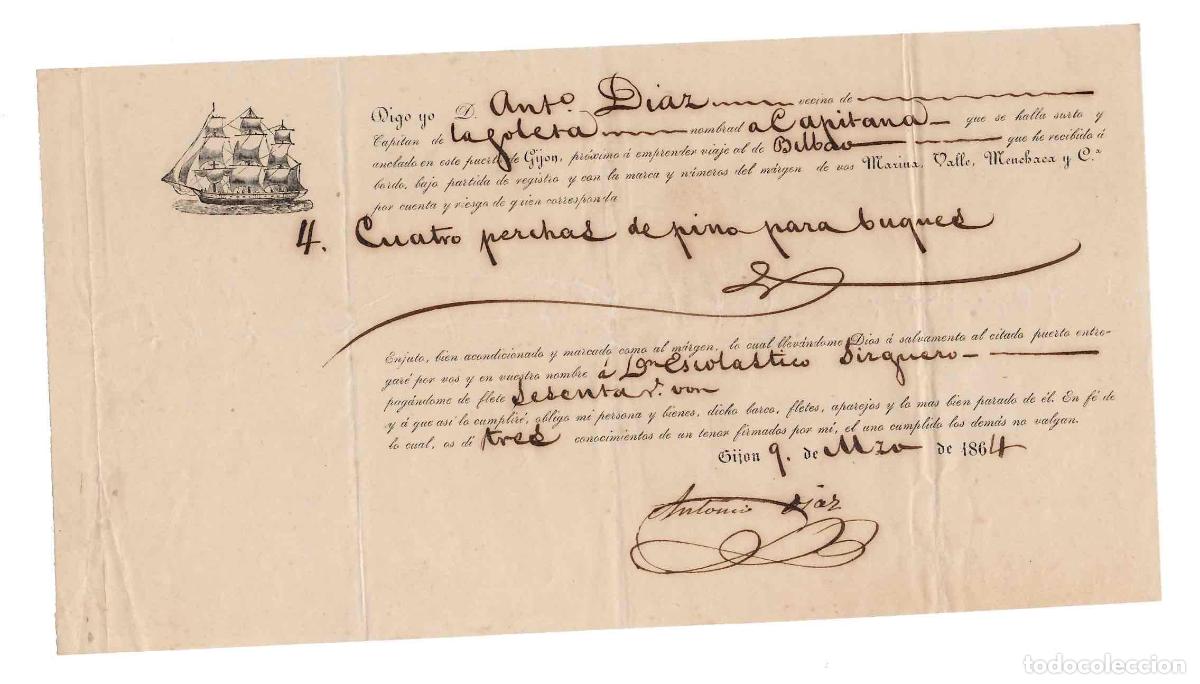 Digo yo D. Antº Diaz vecino de
Capitan de la goleta nombrad a Capitana que se halla surto y
anclado en este puerto de Gijon, próximo á emprender viaje al de Bilbao que he recibido á
bordo, bajo partida de registro y con la marca y números del márgen de vos Marina, Valle, Menchaca y C.ª
por cuenta y riesgo de quien corresponda
4. Cuatro perchas de pino para buques
Enjuto, bien acondicionado y marcado como al márgen, lo cual llevándome Dios á salvamento al citado puerto entre-
garé por vos y en vuestro nombre á Dn Escolastico Sirguero
pagándome de flete Sesenta r.s von
y á que asi lo cumpliré, obligo mi persona y bienes, dicho barco, fletes, aparejos y lo mas bien parado de él. En fé de
lo cual, os dí tres conocimientos de un tenor firmados por mí, el uno cumplido los demás no valgan.
Gijon 9. de Mzo de 1864
Antonio Diaz
todocoleccion